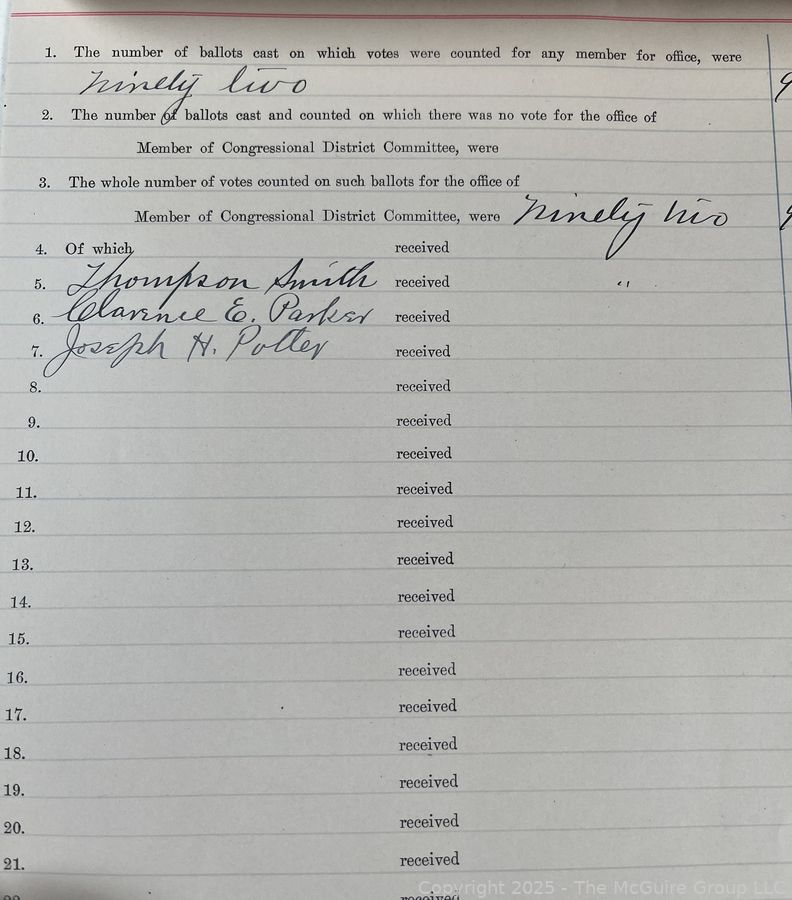 1. The number of ballots cast on which votes were counted for any member for office, were
Ninety two
2. The number of ballots cast and counted on which there was no vote for the office of
Member of Congressional District Committee, were
3. The whole number of votes counted on such ballots for the office of
Member of Congressional District Committee, were Ninety two
4. Of which received
5. Thompson Smith received "
6. Clarence E. Parker received
7. Joseph H. Potter received
8. received
9. received
10. received
11. received
12. received
13. received
14. received
15. received
16. received
17. received
18. received
19. received
20. received
21. received
22. received
Copyright 2025 - The McGuire Group LLC